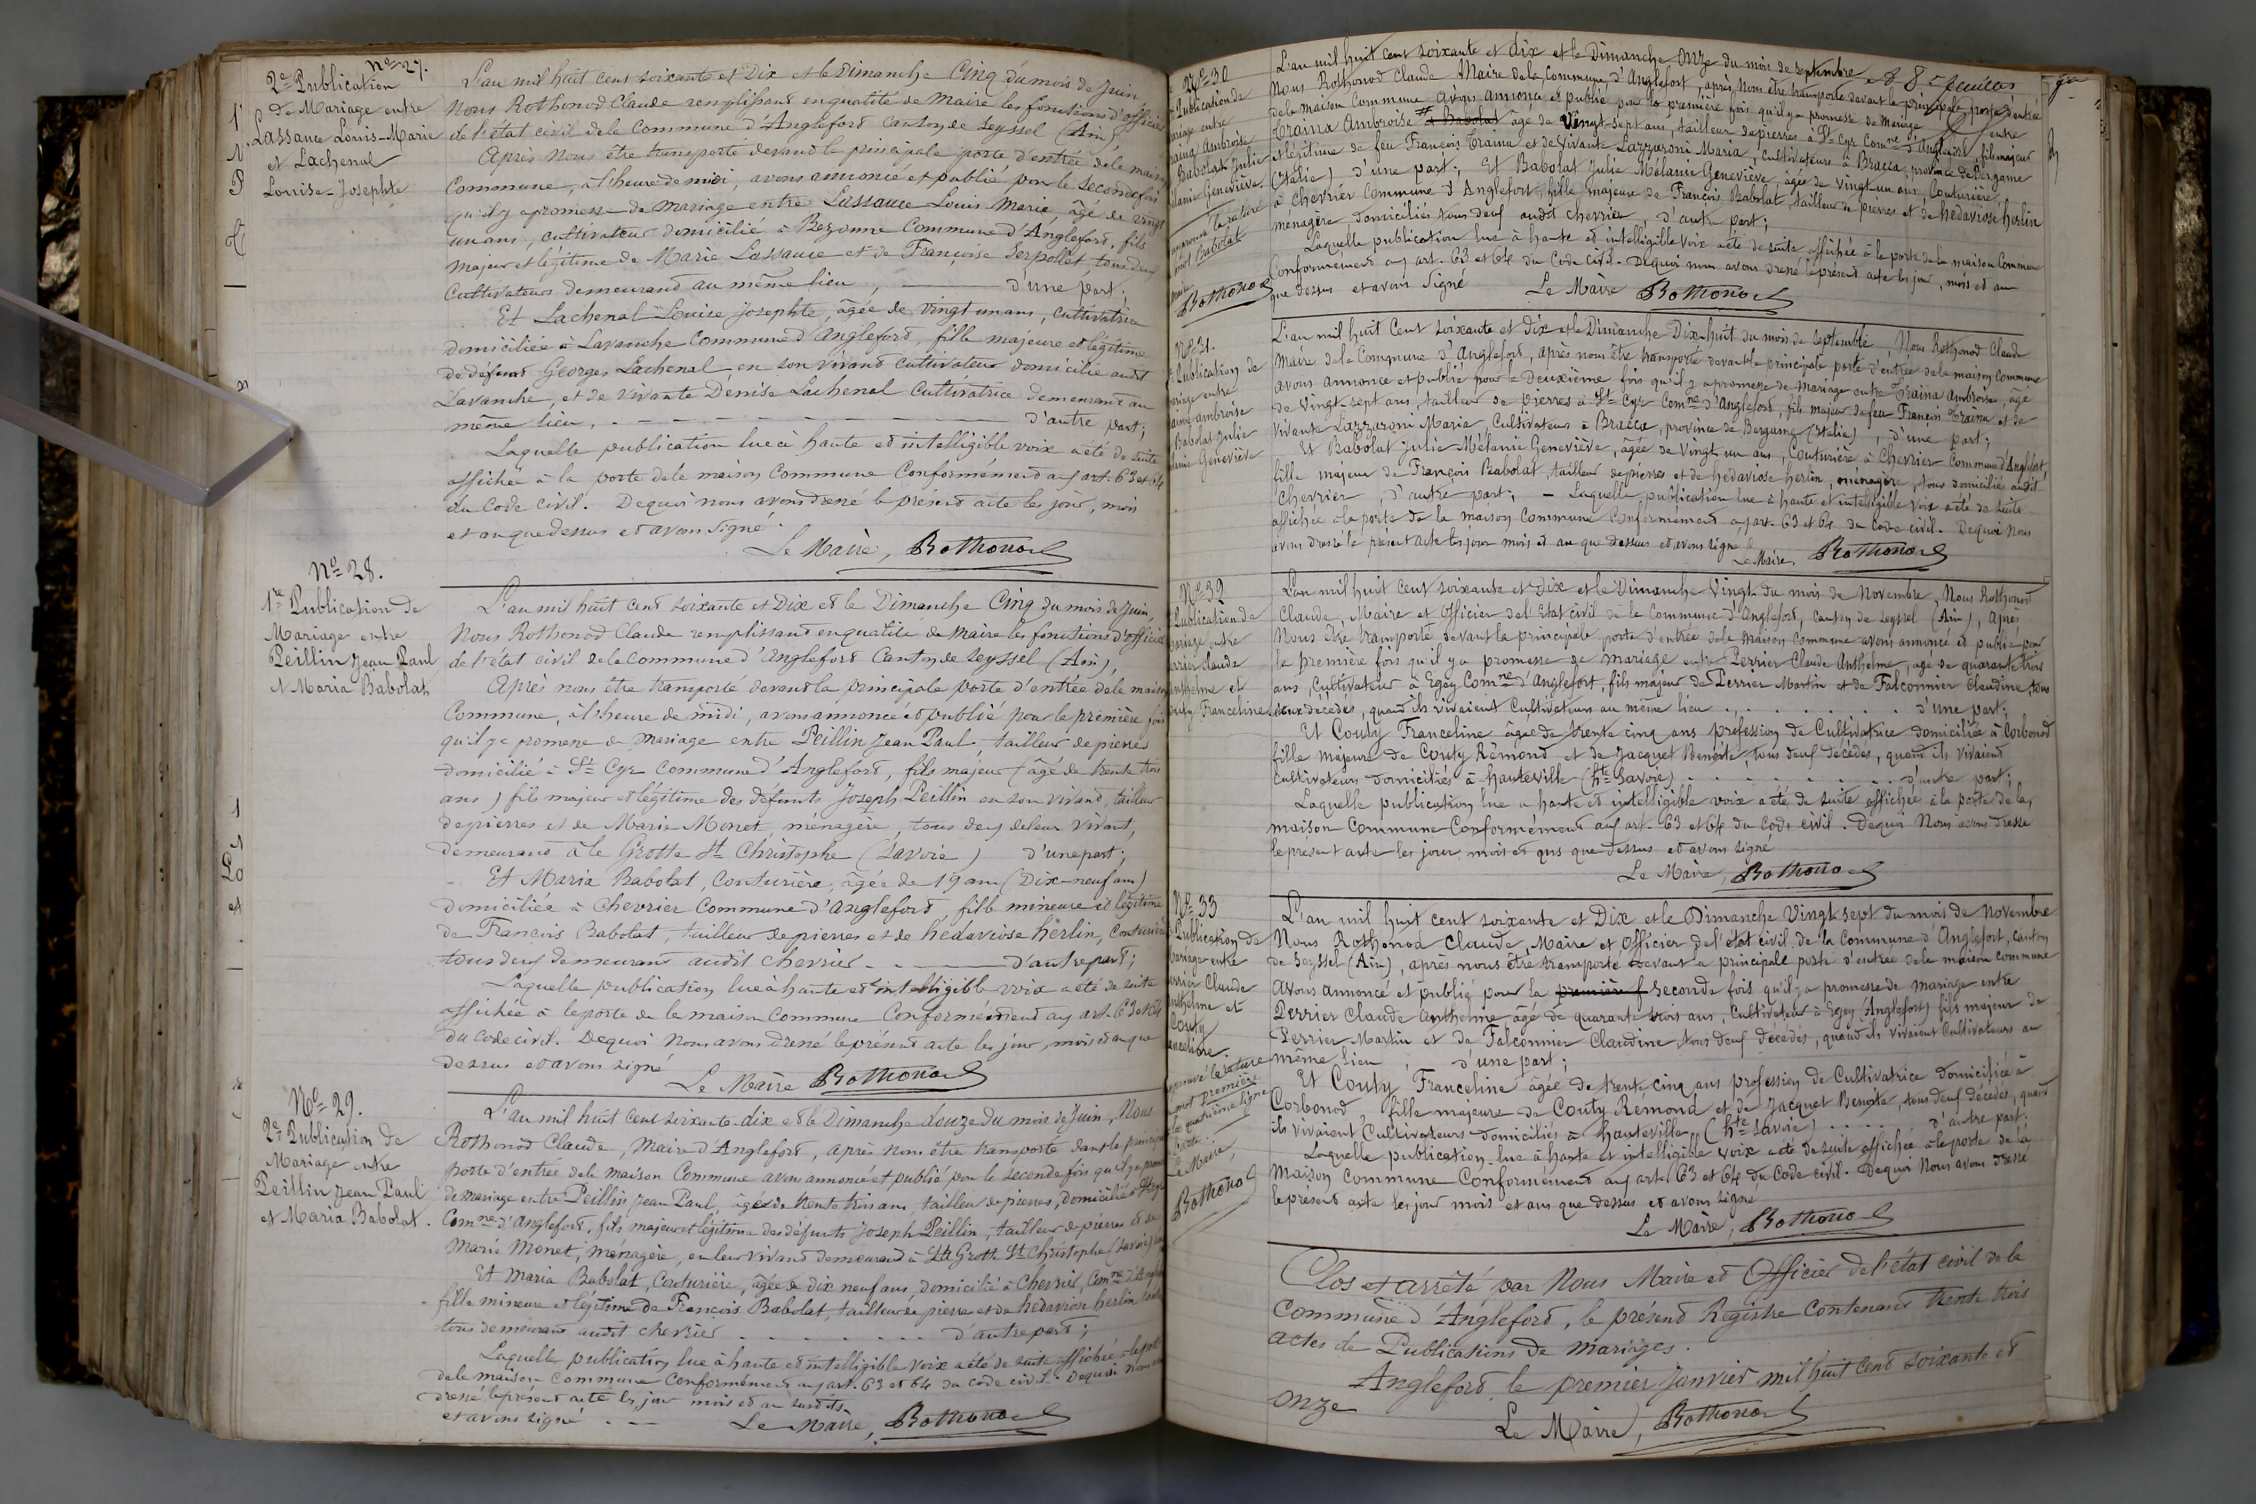 nº 27.
2e Publication
de Mariage entre
Lassauce Louis-Marie
et Lachenal
Louise-Josephte
L'an mil huit cent soixante et Dix et le Dimanche Cinq du mois de Juin
Nous Rothonod Claude remplissant en qualité de Maire les fonctions d'officier
de l'état civil de la Commune d'Angleford Canton de Seyssel (Ain)
Après nous être transporté devant la principale porte d'entrée de la maison
Commune, à l'heure de midi, avons annoncé et publié pour la seconde fois
qu'il y a promesse de mariage entre Lassauce Louis Marie âgé de vingt
un ans, cultivateur domicilié à Bezonne Commune d'Angleford, fils
majeur et légitime de Marie Lassauce et de Françoise Serpollet, tous deux
Cultivateurs demeurand au même lieu, d'une part;
Et Lachenal Louise Josephte, âgée de vingt un ans, cultivatrice
domiciliée à Lavanche Commune d'Angleford, fille majeure et légitime
de défunt Georges Lachenal en son vivant cultivateur domicilié audit
Lavanche, et de vivante Denise Lachenal Cultivatrice demeurant au
même lieu, d'autre part;
Laquelle publication lue à haute et intelligible voix a été de suite
affichée à la porte de la maison Commune Conformément aux art. 63 et 64
du Code Civil. De quoi nous avons dressé le présent acte les jour, mois
et an que dessus et avons signé
Le Maire, Rothonod
Nº 28.
1re Publication de
Mariage entre
Peillin Jean Paul
et Maria Babolat
L'an mil huit cent soixante et Dix et le Dimanche Cinq du mois de Juin,
Nous Rothonod Claude remplissant en qualité de Maire les fonctions d'officier
de l'état civil de la Commune d'Angleford Canton de Seyssel (Ain),
Après nous être transporté devant la principale porte d'entrée de la maison
Commune, à l'heure de midi, avons annoncé et publié pour la première fois
qu'il y a promesse de mariage entre Peillin Jean Paul, tailleur de pierres
domicilié à St Cyr Commune d'Angleford, fils majeur (âgé de trente trois
ans) fils majeur et légitime des défunts Joseph Peillin en son vivant, tailleur
de pierres et de Marie Monet, ménagère, tous deux de leur vivant,
demeurand à la Grotte St Christophe (Savoie) d'une part;
Et Maria Babolat, Couturière, âgée de 19 ans (Dix-neuf ans)
domiciliée à Chevrier Commune d'Angleford fille mineure et légitime
de François Babolat, tailleur de pierres et de hédaviose herlin, Couturière
tous deux demeurant audit Chevrier d'autre part;
Laquelle publication lue à haute et intelligible voix a été de suite
affichée à la porte de la maison Commune Conformément aux art. 63 et 64
du Code civil. De quoi Nous avons dressé le présent acte les jour, mois et an que
dessus et avons signé
Le Maire Rothonod
Nº 29.
2e Publication de
Mariage entre
Peillin Jean Paul
et Maria Babolat.
L'an mil huit cent soixante-dix et le Dimanche douze du mois de Juin, Nous
Rothonod Claude, Maire d'Angleford, après nous être transporté devant la principale
porte d'entrée de la maison Commune avons annoncé et publié pour la seconde fois qu'il y a promesse
de mariage entre Peillin Jean Paul, âgé de trente trois ans, tailleur de pierres, domicilié à St Cyr
Comne d'Angleford, fils majeur et légitime des défunts Joseph Peillin, tailleur de pierres et de
Marie Monet, ménagère, en leur vivant demeurand à la Grotte St Christophe (Savoie)
Et Maria Babolat, Couturière, âgée de dix neuf ans, domicilié à Chevrier, Comne d'Angleford
fille mineure et légitime de François Babolat, tailleur de pierre et de hedaviose herlin
tous demeurant audit Chevrier d'autre part;
Laquelle publication lue à haute et intelligible voix a été de suite affichée à la porte
de la maison Commune Conformément aux art. 63 et 64 du code civil. De quoi nous avons
dressé le présent acte les jour mois et an susdits
et avons signé Le Maire, Rothonod
et 8 feuillets
Nº 30
Publication de
Mariage entre
Traina Ambroise
Babolat Julie
Mélanie Geneviève
L'an mil huit cent soixante et dix et le Dimanche onze du mois de septembre
Nous Rothonod Claude Maire de la Commune d'Anglefort, après Nous être transporté devant la principale porte d'entrée
de la maison Commune avons annoncé et publié pour la première fois qu'il y a promesse de Mariage entre
Traina Ambroise et Babolat âgé de Vingt-sept ans, tailleur de pierres à St Cyr Comne d'Anglefort, fils majeur
et légitime de feu François Traina et de vivante Lazzaroni Maria, cultivateurs à Bracca, province de Bergame
(Italie) d'une part; Et Babolat Julie Mélanie Geneviève, âgée de vingt-un ans, Couturière
à Chevrier Commune d'Anglefort, fille majeure de François Babolat, tailleur de pierres et de hédaviose herlin
ménagère domiciliés tous deux audit Chevrier, d'autre part;
Laquelle publication lue à haute et intelligible voix a été de suite affichée à la porte de la maison Commune
Conformément aux art. 63 et 64 du Code civil. De quoi nous avons dressé le présent acte les jour, mois et an
que dessus et avons signé Le Maire Rothonod
la rature
mot Babolat
Rothonod
Nº 31.
Publication de
Mariage entre
Traina Ambroise
Babolat Julie
Mélanie Geneviève
L'an mil huit Cent soixante et dix et le Dimanche Dix-huit du mois de septembre Nous Rothonod Claude
Maire de la Commune d'Angleford, après nous être transporté devant la principale porte d'entrée de la maison Commune
avons annoncé et publié pour la Deuxième fois qu'il y a promesse de mariage entre Traina Ambroise, âgé
de Vingt sept ans, tailleur de Pierres à St Cyr Comne d'Angleford, fils majeur de feu François Traina et de
Vivante Lazzaroni Maria, Cultivateurs à Bracca, province de Bergame (Italie), d'une part;
Et Babolat Julie Mélanie Geneviève, âgée de Vingt un ans, Couturière à Chevrier Commune d'Anglefort
fille majeur de François Babolat, tailleur de pierres et de hedaviose herlin, ménagère, tous domiciliés audit
Chevrier, d'autre part; - Laquelle publication lue à haute et intelligible voix a été de suite
affichée à la porte de la maison Commune Conformément aux art. 63 et 64 du Code civil. De quoi Nous
avons dressé le présent acte les jour mois et an que dessus et avons signé
Le Maire, Rothonod
Nº 32
Publication de
Mariage entre
Perrier Claude
Anthelme et
Couty Franceline
L'an mil huit cent soixante et Dix et le Dimanche Vingt du mois de Novembre, Nous Rothonod
Claude, Maire et Officier de l'Etat civil de la Commune d'Anglefort, canton de Seyssel (Ain), Après
Nous être transporté devant la principale porte d'entrée de la Maison Commune avons annoncé et publié pour
la première fois qu'il y a promesse de mariage entre Perrier Claude Anthelme, âgé de quarante trois
ans, Cultivateur à Egey Comne d'Anglefort, fils majeur de Perrier Martin et de Falconnier Claudine tous
deux décédés, quand ils vivaient Cultivateurs au même lieu d'une part;
Et Couty Franceline âgée de trente cinq ans profession de Cultivatrice domiciliée à Corbonod
fille majeure de Couty Rémond et de Jacquet Benoite, tous deux décédés, quand ils vivaient
Cultivateurs domiciliés à hauteville (hte Savoie) d'autre part;
Laquelle publication lue à haute et intelligible voix a été de suite affichée à la porte de la
maison Commune Conformément aux art. 63 et 64 du Code civil. De quoi Nous avons dressé
le présent acte les jour mois et ans que dessus et avons signé
Le Maire, Rothonod
Nº 33
Publication de
Mariage entre
Perrier Claude
Anthelme et
Couty
Franceline.
L'an mil huit cent soixante et Dix et le Dimanche Vingt sept du mois de Novembre
Nous Rothonod Claude, Maire et Officier de l'état civil de la Commune d'Anglefort, canton
de Seyssel (Ain), après nous être transporté devant la principale porte d'entrée de la maison commune
Avons annoncé et publié pour la première f seconde fois qu'il y a promesse de mariage entre
Perrier Claude Anthelme âgé de quarante trois ans, Cultivateur à Egey (Anglefort) fils majeur de
Perrier Martin et de Falconnier Claudine, tous deux décédés, quand ils vivaient Cultivateurs au
même lieu, d'une part;
Et Couty Franceline âgée de trente cinq ans profession de Cultivatrice domiciliée à
Corbonod, fille majeure de Couty Rémond et de Jacquet Benoite, tous deux décédés, quand
ils vivaient Cultivateurs domiciliés à hauteville, (hte Savoie) d'autre part;
Laquelle publication lue à haute et intelligible voix a été de suite affichée à la porte de la
Maison Commune Conformément aux art. 63 et 64 du Code civil. De quoi Nous avons dressé
le présent acte les jour mois et ans que dessus et avons signé
Le Maire, Rothonod
approuvé la rature
mot première
quatrième ligne
Le Maire,
Rothonod
Clos et arrêté par Nous Maire et Officier de l'état civil de la
Commune d'Angleford, le présend Registre Contenand trente trois
actes de Publications de mariages.
Angleford le premier Janvier mil huit Cent soixante et
onze
Le Maire, Rothonod